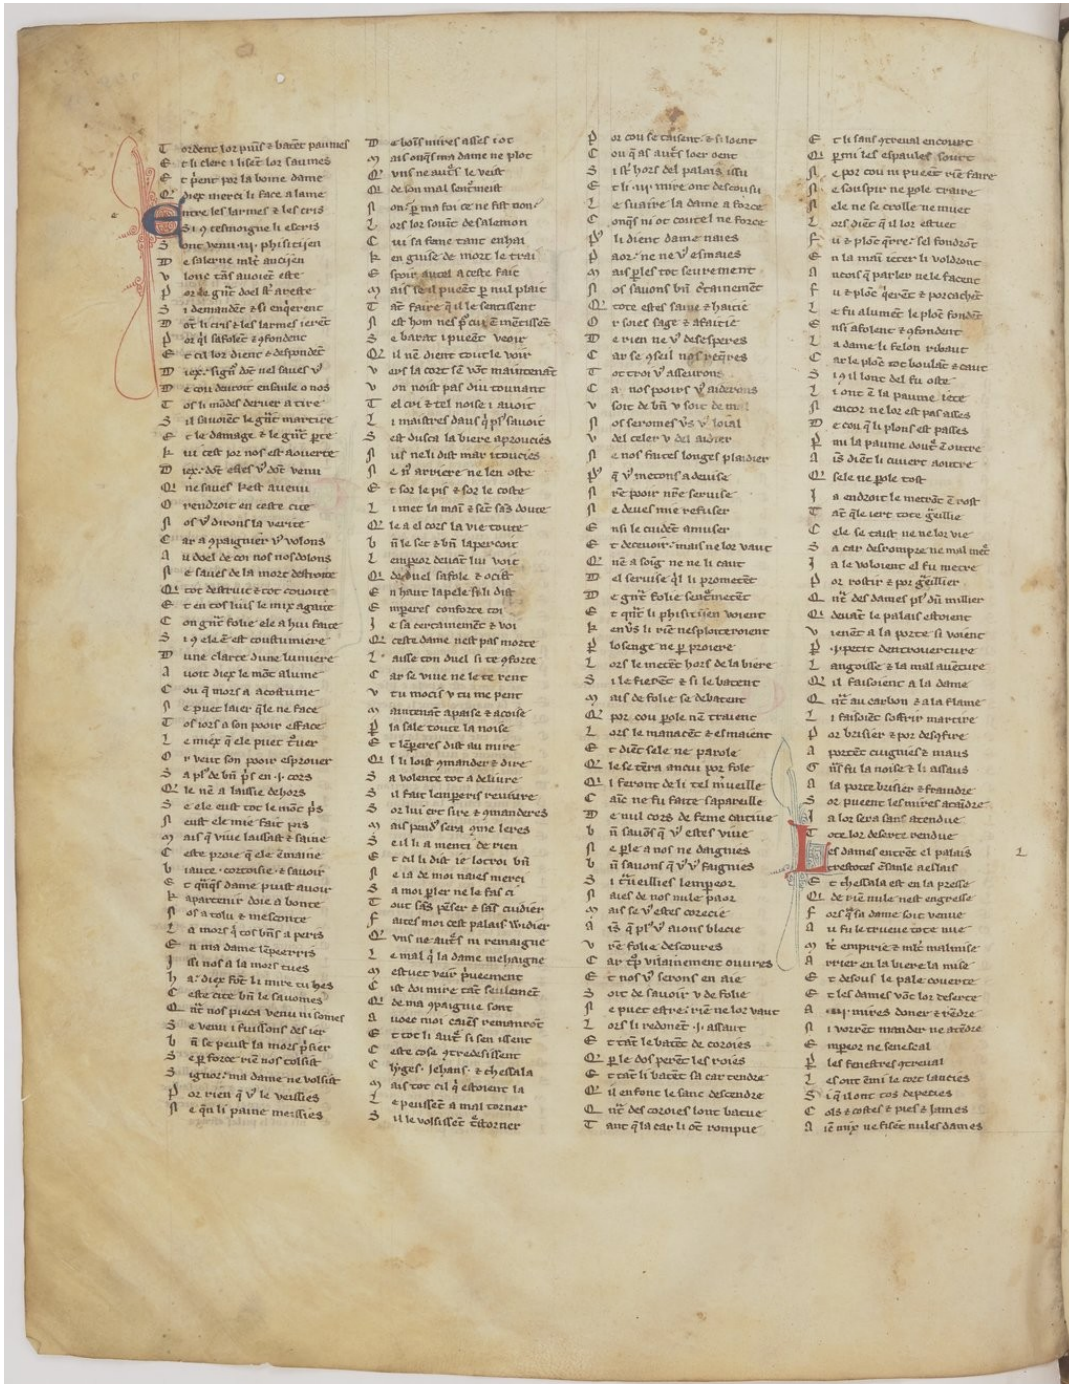 Tordent lor puīs & batēt paumes
Et li clerc i lisēt lor saumes
Et pͥent por la boine dame
Q̄ diex merci li face a lame
Entre les larmes & les cris
Si ꝯ tesmoigne li escris
Sont venu ·iii· phisitijen
De salerne mlt̄ ancijen
V lonc tās avoiēt este
Por le gn̄t doel sͬ areste
Si demandēt & si enqͥerent
Dōt li cris & les larmes ierēt
Por qͥl safolēt & ꝯfondent
Et cil lor dient & despondēt
Diex· signͬ dōt nel saves vͦ
De cou devroit ensanle o nos
Tos li mōdes derver a tire
Sil savoiēt le gn̄t martire
Et le damage & le gn̄t ꝑte
Kui cest jor nos est aoverte
Diex· dōt estes vͦ dōt venu
Qͥ ne saves kest avenu
Orendroit en ceste cite
Nos vͦ dirons la verite
Car a ꝯpaignier vͦ volons
Au doel de coi nos nos dolons
Ne saves de la mort destroite
Qͥ tot destruit & tot covoite
Et en tos lius le mix agaite
Con gn̄t folie ele a hui faite
Si ꝯ ele ē est coustumiere
Dune clarte dune lumiere
Avoit diex le mōt alume
Cou q̄ mors a acostume
Ne puet laier q̄le ne face
Tos jors a son pooir efface
Le miex q̄ ele puet tͦver
Or veut son pooir esprover
Sa plͥ de bn̄ pͥs en ·j· cors
Qͥle nē a laissie dehors
Se ele eust tot le mōt pͥs
Neust ele mie fait pis
Mais q̄ vive laissast & saine
Ceste proie que ele ēmaine
Biaute · cortoisie · & savoir
Et qn̄qͥs dame puist avoir
Kapartenir doie a bonte
Nos a tolu & mesconte
La mors qͥ tos bn̄s a peris
En ma dame lēpeerris
Issi nos a la mors tues
Ha· diex fōt li mire tu hes
Ceste cite bn̄ le savomes
Qn̄t nos pieca venu ni somes
Se venu i fuissons des ier
Bn̄ se peust la mors pͥsier
Se ꝑ force riē nos tolsist
Signor· ma dame ne volsist
Por rien q̄ vͦ le veissies
Ne qͥ n li paine meissies
De boīs mires asses i ot
Mais onqͥs ma dame ne plot
Qͥ vns ne autͤs le veist
Qͥ de son mal sentͤmeist
Non ꝑ ma foi ce ne fist non·
Lors lor sovīt de salemon
Cui sa fame tant enhai
Ken guise de mort le trai
Espoir autel a ceste fait
Mais se il pueēt ꝑ nul plait
Tāt faire q̄ il le sentissent
Nest hom nes pͦ cui ē mētissēt
Se barat i pueēt veoir
Qͥ il nē dient tout le voir
Vers la cort sē vōt maintenāt
V on noist pas diu tounant
Tel cri & tel noise i avoit
Li maistres daus qͥ plͥ savoit
Sest dusca la biere aproucies
Nus ne li dist mar i toucies
Ne nͥ arriere ne len oste
Et sor le pis & sor le coste
Li met la maī & sēt sās doute
Qͥ le a el cors la vie toute
Bn̄ le set & bn̄ laperçoit
Lempeor devāt lui voit
Qͥ de duel safole & ocist
En haut lapele se li dist
Emperes conforte toi
Je sa certainemēt & voi
Qͥ ceste dame nest pas morte
Laisse ton duel si te ꝯforte
Car se vive ne le te rent
V tu mocis v tu me pent
Maintenāt apaise & acoise
Pla sale toute la noise
Et lēperes dist au mire
Qͥl li loist ꝯmander & dire
Sa volente tot a delivre
Sil fait lemperis revivre
Sor lui ert sire & ꝯmanderes
Mais pendͦ sera ꝯme leres
Se il li a menti de rien
Et cil li dist ie lotroi bn̄
Ne ia de moi naies merci
Sa moi ꝑler ne le fas ci
Tout sās pēser & sās cuidier
Faites moi cest palais widier
Qͥ vns ne autͤs ni remaigne
Le mal qͥ la dame mehaigne
Mestuet veir pͥveement
Cist doi mire tāt seulemēt
Qͥ de ma ꝯpaignie sont
Avoec moi caiēs remanrōt
Et tot li autͤ si sen issent
Ceste cose ꝯtredesissent
Clyges· Jehans· & thessala
Mais tot cil qͥ estoient la
Le peussēt a mal torner
Sil le volsissēt tͤstorner
Por cou se taisent · & si loent
Cou q̄ as autͤs loer oent
Si sͬ hors del palais issu
Et li ·iii· mire ont descousu
Le suaire la dame a force
Conqͥs ni ot coutel ne force
Pͥ li dient dame naies
Paor· ne ne vͦ esmaies
Mais ꝑles tot seurement
Nos savons bn̄ c̄tainemēt
Qͥ tote estes saine & haitie
Or soies sage & afaitie
De rien ne vͦ desesperes
Car se ꝯseil nos reqͥres
Tot troi vͦ asseurons
Ca· nos pooirs vͦ aiderons
V soit de bn̄ v soit de mal
Nos seromes vͤs vͦ loial
V del celer v del aidier
Ne nos faites longes plaidier
Pͥ q̄ vͦ metons a devise
Nrē pooir nrē servise
Ne deves mie refuser
Ensi le cuidēt amuser
Et decevoir· mais ne lor vaut
Qͥ nē a soig ne ne li caut
Del servise qͥl li prometēt
De gn̄t folie sentͤmetēt
Et qn̄t li phisitijen voient
Kenvͤs li riē nesploiteroient
Plosenge ne ꝑ proiere
Lors le metēt hors de la biere
Si le fierēt & si le batent
Mais de folie se debatent
Qͥ por cou ꝑole nē traient
Lors le manacēt & esmaient
Et diēt sele ne parole
Qͥ le se tēra ancui por fole
Qͥ i feront de li tel mͤveille
Cāīc ne fu faite sapareille
De nul cors de feme caitive
Bn̄ savōs q̄ vͦ estes vive
Ne ꝑler a nos ne daignies
Bn̄ savons q̄ vͦ vͦ faignies
Si tͥveillies lempeor
Naies de nos nule paor
Mais se vͦ estes corecie
Ais q̄ plͥ vͦ aions blecie
Vrē folie descoures
Car tͦp vilainement ouvres
Et nos vͦ serons en aie
Soit de savoir v de folie
Ne puet estre· riē ne lor vaut
Lors li redonēt ·j· assaut
Et tāt le batēt de coroies
Qͥ ꝑ le dos perēt les roies
Et tāt li batēt sa car tendre
Qͥ il en font le sanc descendre
Qn̄t des coroies lont batue
Tant q̄ la car li ōt rompue
Et li sans ꝯtreval encourt
Qͥ ꝑmi les espaules sourt
Ne por cou ni pueēt riē faire
Ne souspir ne pole traire
Nele ne se crolle ne muet
Lors diēt q̄ il lor estuet
Fu & plōc qͤrre· sel fondrōt
En la maī ieter li voldront
Ancois q̄ parler ne le facent
Fu & plōc qͥerēt & porcachēt
Le fu alumēt le plōc fondēt
Ensi afolent & ꝯfondent
La dame li felon ribaut
Car le plōc tot boulāt & caut
Si ꝯ il lont del fu oste
Li ont ē la paume jete
Nencor ne lor est pas asses
De cou q̄ li plons est passes
Pmi la paume doutͤ ē outre
Ais diēt li cuvert aoutre
Qͥ sele ne ꝑole tost
Ja endroit le metrōt ē rost
Tāt q̄le iert tote gͤeillie
Cele se taist ne ne lor vie
Sa car desrompre ne mal metͤ
Ja le voloient el fu metre
Por rostir & por gͤeillier
Qn̄t des dames plͥ dū millier
Qͥ devāt le palais estoient
Vienēt a la porte si voient
P ·j· petit dentrouverture
Langoisse & la mal avēture
Qͥ il faisoient a la dame
Qn̄t au carbon & a la flame
Li faisoiēt soffrir martire
Por brisier & por desqͥfire
Aportēt cuignies & maus
Gn̄s fu la noise & li assaus
A la porte brisier & fraindre
Sor pueent les mires ataīdre
Ja lor sera sans atendue
Tote lor deserte rendue
Les dames entrēt el palais
Trestotes ēsanle a eslais
Et thessala est en la presse
Qͥ de riē nule nest engresse
Fors qͥ sa dame soit venue
Au fu le trueve tote nue
Mlt̄ empirie & mlt̄ malmise
Arrier en la biere la mise
Et desous le pale coverte
Et les dames vōt lor deserte
A ·iii· mires doner & rēdre
Ni vorēt mander ne atēdre
Empeor ne senescal
Ples fenestres ꝯtreval
Les ont ēmi le cort lancies
Si q̄ il ont tos depecies
Cols & costes & pies & james
Aīc mix ne fisēt nules dames